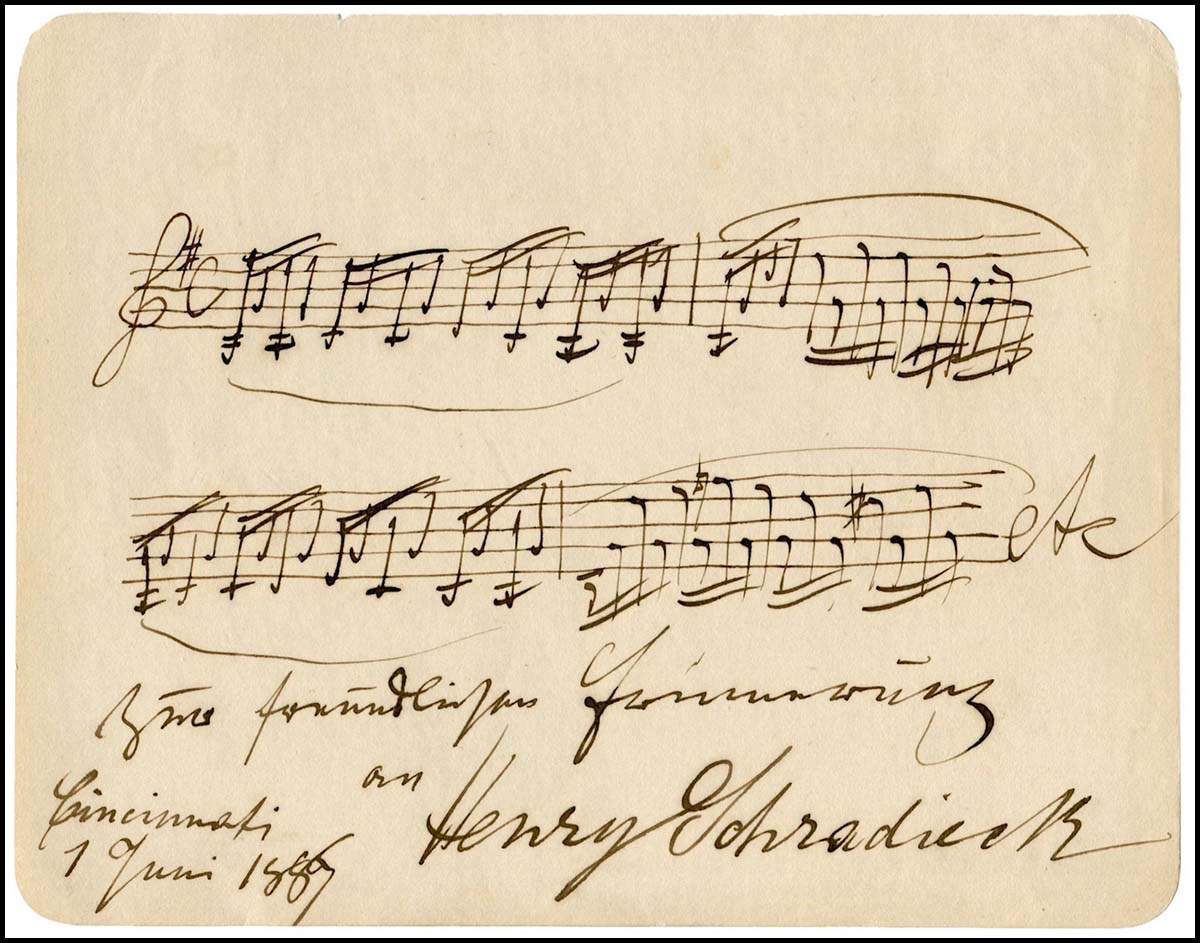 etc
Zur freundlichen Erinnerung
an Henry Schradieck
Cincinnati
1 Juni 1887